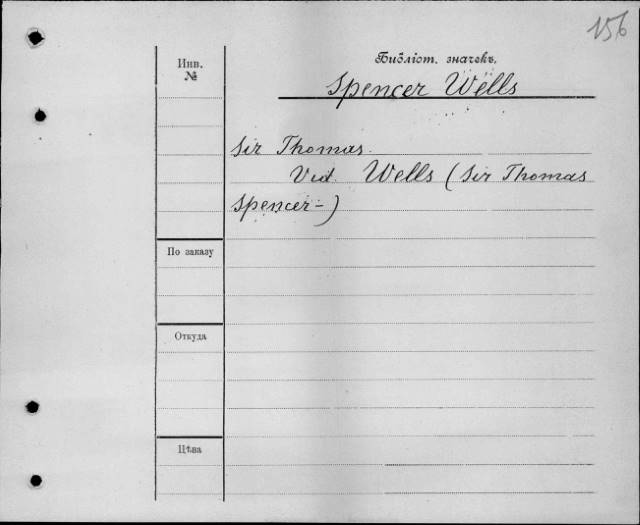 156
Инв.
№
Библіот. значекъ.
Spencer Wells
Sir Thomas.
Vid. Wells (Sir Thomas
Spencer-)
По заказу
Откуда
Цѣна